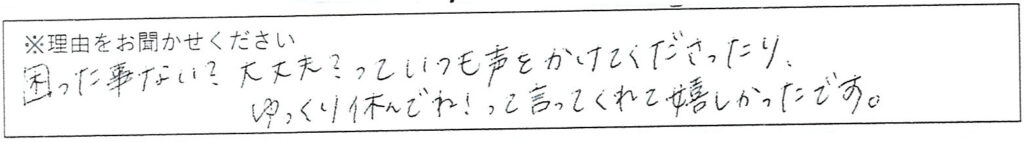 ※理由をお聞かせください
困った事ない？大丈夫？っていつも声をかけてくださったり、
ゆっくり休んでね！って言ってくれて嬉しかったです。